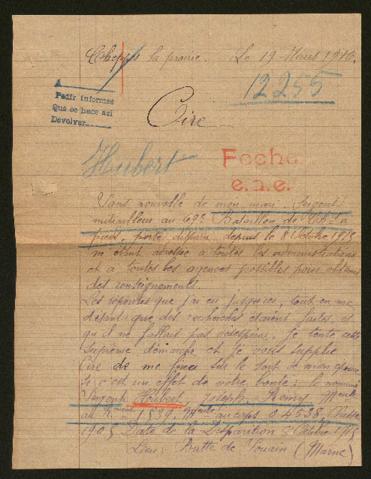 la prairie. Le 19 Mars 1916.
A
Pedir informes
Que se hace así
Devolver
12255
Cire
Hubert
Fecha
e.n.e.
Sans nouvelle de mon mari, Sergent
mitrailleur au 69e Bataillon de
pieds, porté disparu, depuis le 8 Octobre 1915
à toutes les administrations
et à toutes les agences possibles pour obtenir
des renseignements.
Les réponses que j'ai eu jusqu'ici, tout en me
disant que des recherches étaient faites, et
qu'il ne fallait pas désespérer, je tente cette
suprême démarche et je vous supplie
Cire de me fixer sur le sort de mon
si c'est un effet de votre bonté: le nommé
Sergent Hubert, Joseph, Rémy
au corps 04538, Classe
1905 Date de la Disparition 8 Octobre 1915
Lieu: Butte de Souain (Marne)